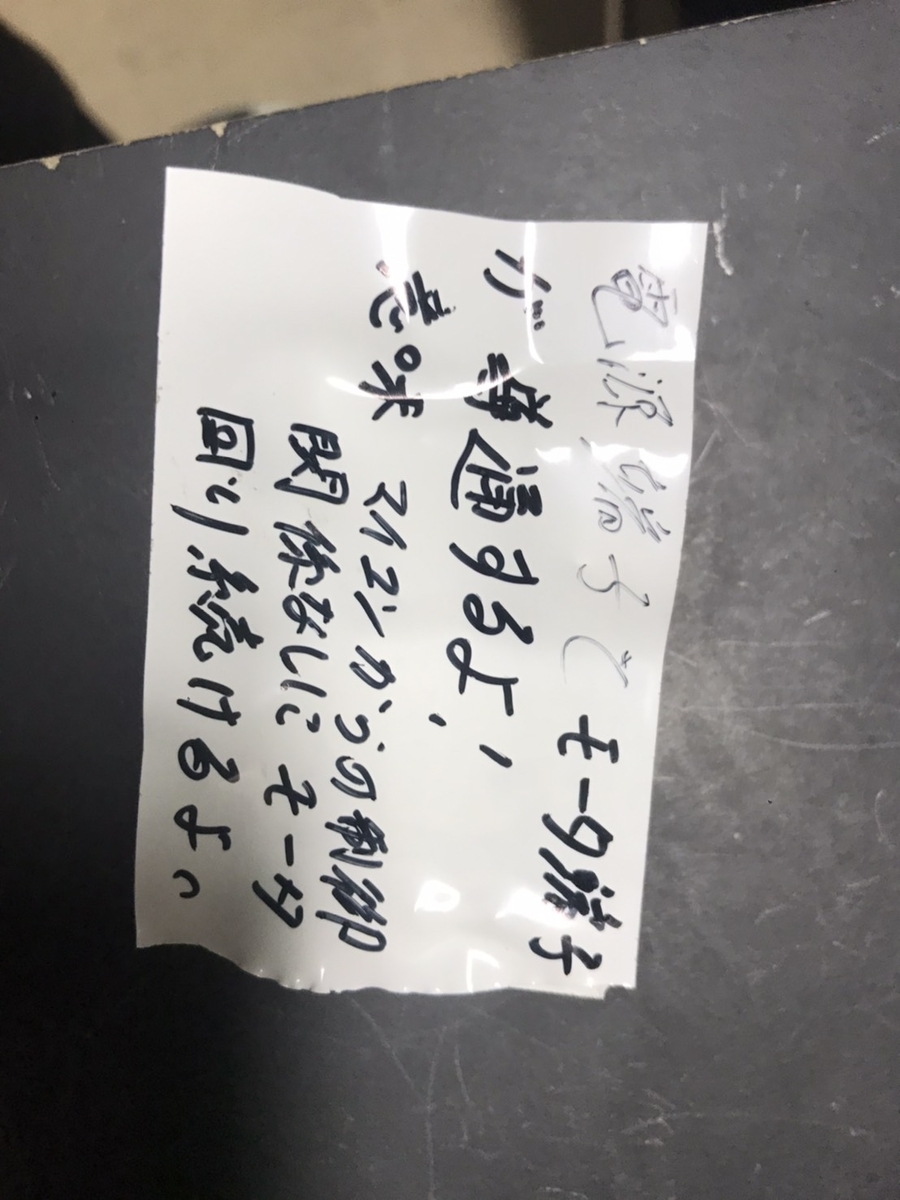 電源端子とモータ端子
が導通するよ、
意味 マイコンからの制御
関係なしにモータ
回り続けるよ。